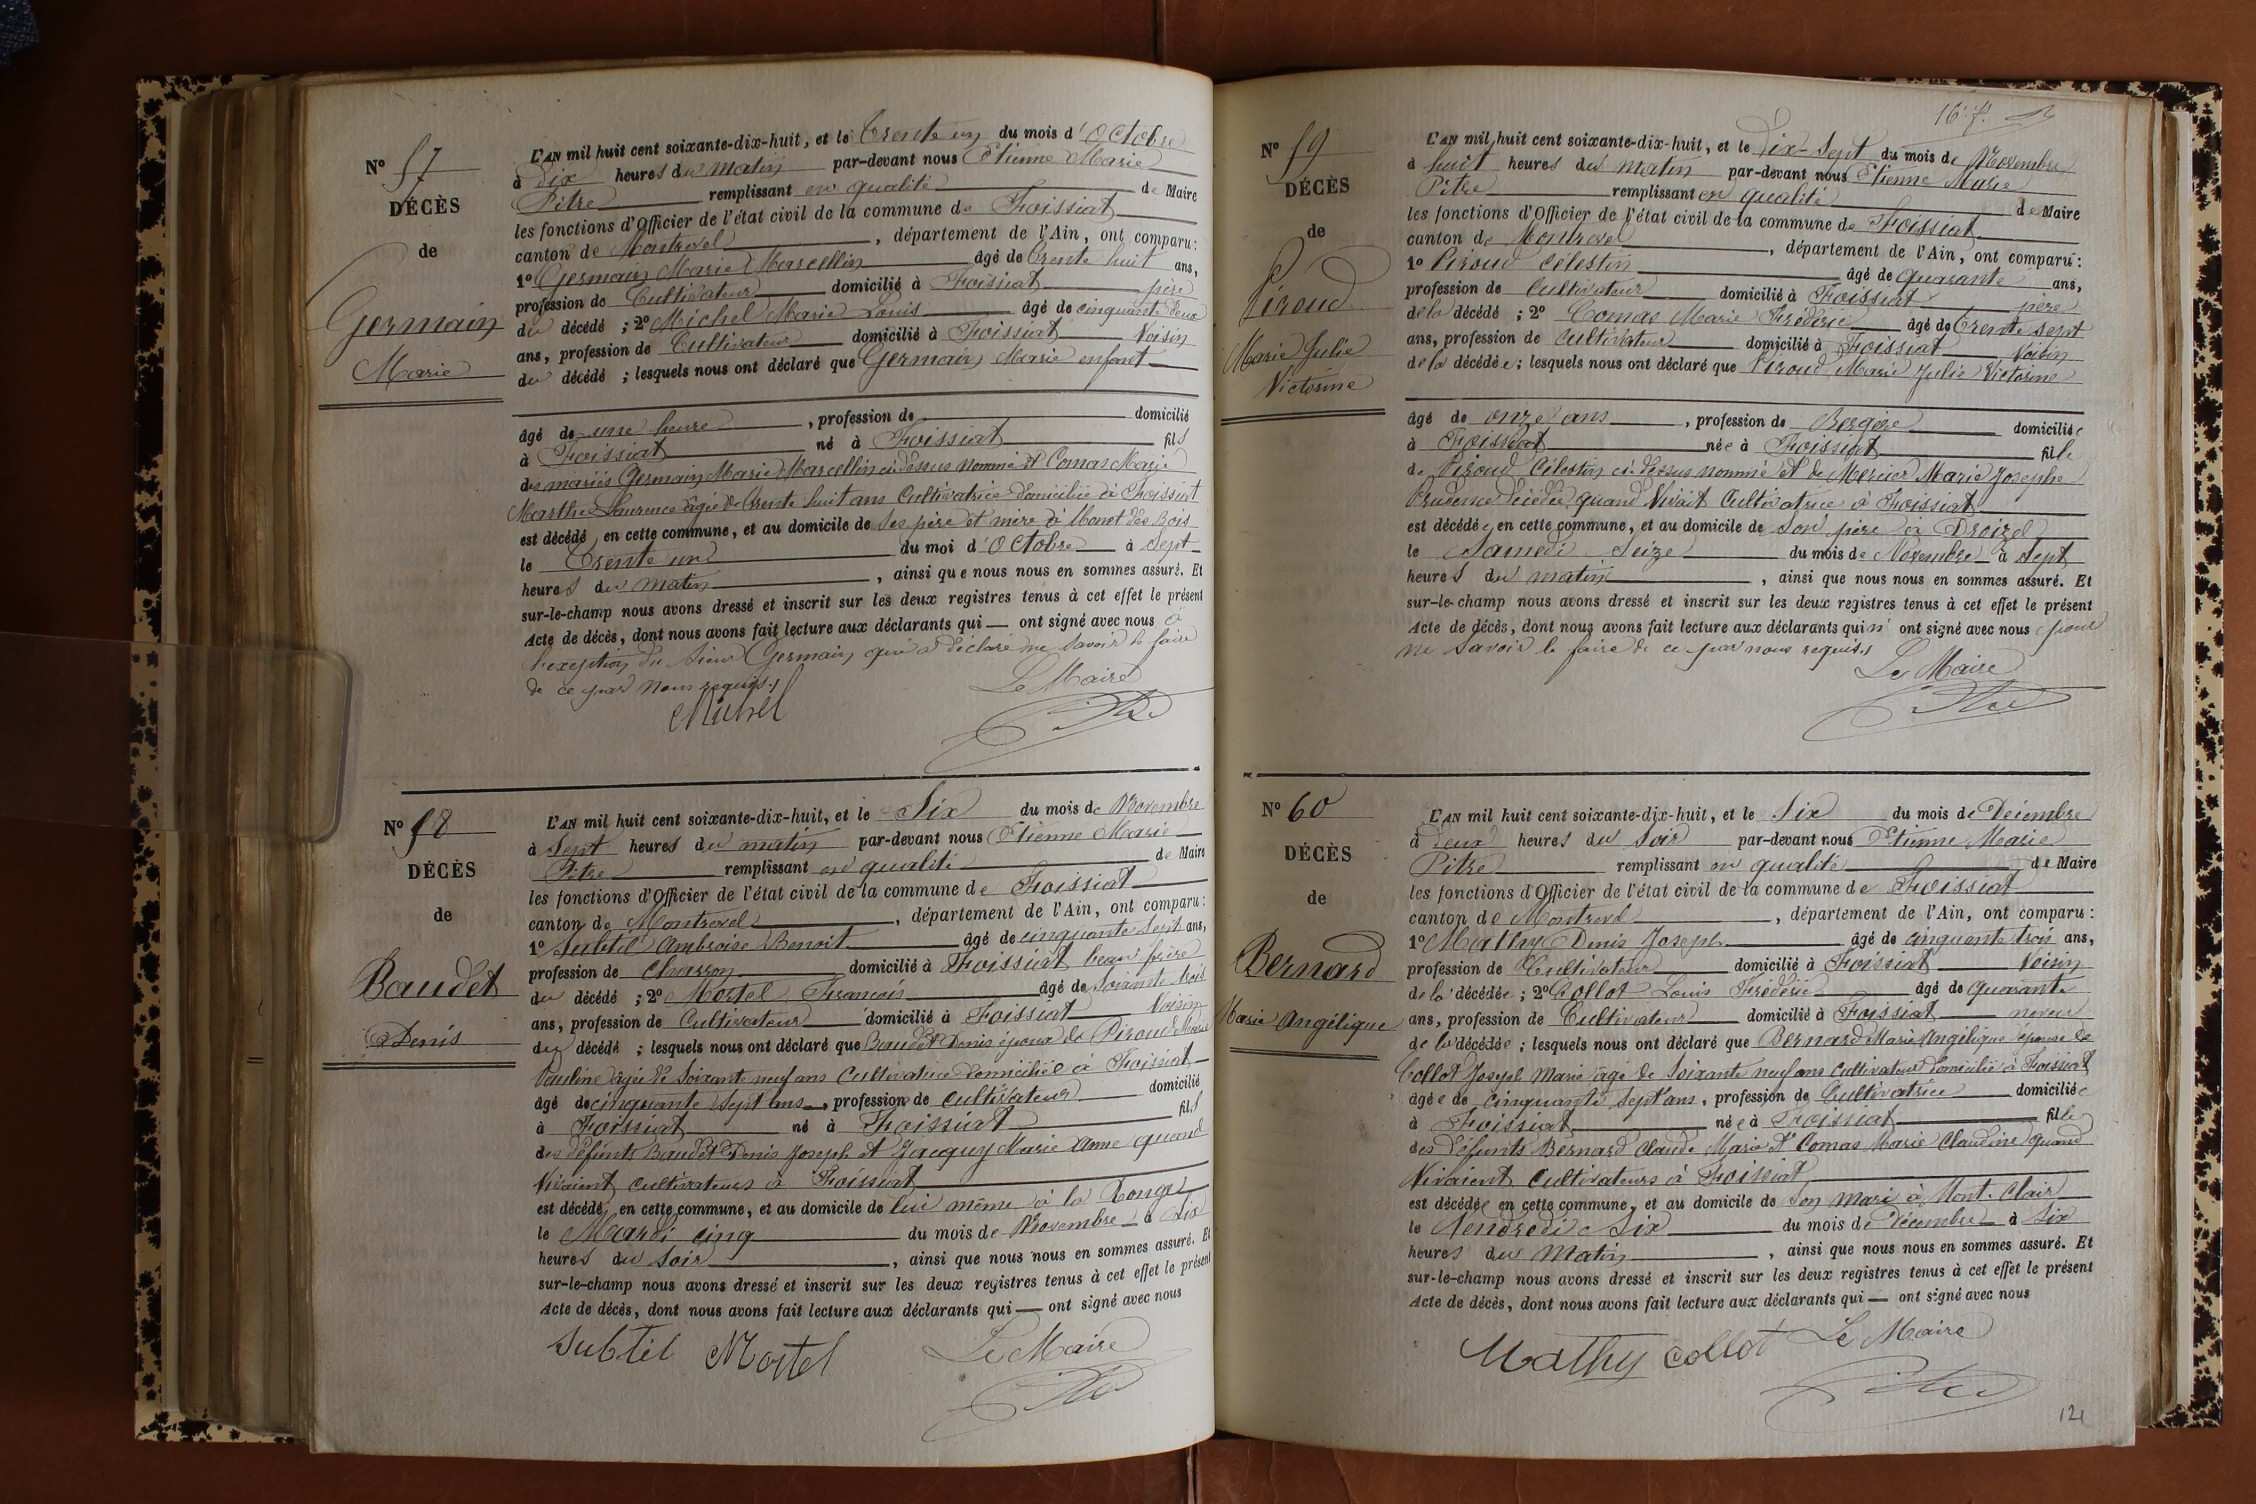 N° 57
DÉCÈS
de
Germain
Marie
L'AN mil huit cent soixante-dix-huit, et le Trente un du mois d'Octobre
à Dix heures du matin par-devant nous Etienne Marie
Pitre remplissant en qualité de Maire
les fonctions d'Officier de l'état civil de la commune de Foissiat
canton de Montrevel, département de l'Ain, ont comparu:
1° Germain Marie Marcellin âgé de Trente huit ans,
profession de Cultivateur domicilié à Foissiat père
du décédé ; 2° Michel Marie Louis âgé de cinquante deux
ans, profession de Cultivateur domicilié à Foissiat Voisin
du décédé ; lesquels nous ont déclaré que Germain Marie enfant
âgé de une heure, profession de domicilié
à Foissiat né à Foissiat fils
des mariés Germain Marie Marcellin ci dessus nommé et Comas Marie
Marthe Laurence âgée de Trente huit ans Cultivatrice domiciliée à Foissiat
est décédé en cette commune, et au domicile de ses père et mère à Monet des Bois
le Trente un du moi d'Octobre à Sept
heures du matin, ainsi que nous nous en sommes assuré. Et
sur-le-champ nous avons dressé et inscrit sur les deux registres tenus à cet effet le présent
Acte de décès, dont nous avons fait lecture aux déclarants qui — ont signé avec nous à
l'exception du sieur Germain qui a déclaré ne savoir le faire
de ce par nous requis.
Le Maire
Michel
Pitre
N° 58
DÉCÈS
de
Baudet
Denis
L'AN mil huit cent soixante-dix-huit, et le Six du mois de Novembre
à Sept heures du matin par-devant nous Etienne Marie
Pitre remplissant en qualité de Maire
les fonctions d'Officier de l'état civil de la commune de Foissiat
canton de Montrevel, département de l'Ain, ont comparu:
1° Subtil Ambroise Benoit âgé de cinquante sept ans,
profession de Charron domicilié à Foissiat beau frère
du décédé ; 2° Mortel François âgé de Soixante trois
ans, profession de Cultivateur domicilié à Foissiat Voisin
du décédé ; lesquels nous ont déclaré que Baudet Denis époux de Piroud Marie
Pauline âgée de Soixante neuf ans Cultivatrice domiciliée à Foissiat
âgé de cinquante sept ans, profession de cultivateur domicilié
à Foissiat né à Foissiat fils
des défunts Baudet Denis Joseph et Jacquy Marie Anne quand
Vivaient cultivateurs à Foissiat
est décédé en cette commune, et au domicile de lui même à la Ronge
le Mardi cinq du mois de Novembre à Six
heures du Soir, ainsi que nous nous en sommes assuré. Et
sur-le-champ nous avons dressé et inscrit sur les deux registres tenus à cet effet le présent
Acte de décès, dont nous avons fait lecture aux déclarants qui — ont signé avec nous
Subtil Mortel Le Maire
Pitre
N° 59
DÉCÈS
de
Piroud
Marie Julie
Victorine
L'AN mil huit cent soixante-dix-huit, et le Dix-Sept du mois de Novembre
à huit heures du matin par-devant nous Etienne Marie
Pitre remplissant en qualité de Maire
les fonctions d'Officier de l'état civil de la commune de Foissiat
canton de Montrevel, département de l'Ain, ont comparu:
1° Piroud Célestin âgé de quarante ans,
profession de Cultivateur domicilié à Foissiat père
de la décédé ; 2° Comas Marie Fréderic âgé de Trente sept
ans, profession de cultivateur domicilié à Foissiat Voisin
de la décédée ; lesquels nous ont déclaré que Piroud Marie Julie Victorine
âgé de onze ans, profession de Bergère domiciliée
à Foissiat née à Foissiat fille
de Piroud Célestin ci dessus nommé et de Mercier Marie Josephe
Prudence décédée quand Vivait Cultivatrice à Foissiat
est décédée en cette commune, et au domicile de son père à Droizel
le Samedi Seize du mois de Novembre à Sept
heures du matin, ainsi que nous nous en sommes assuré. Et
sur-le-champ nous avons dressé et inscrit sur les deux registres tenus à cet effet le présent
Acte de décès, dont nous avons fait lecture aux déclarants qui n' ont signé avec nous pour
ne Savoir le faire de ce par nous requis.
Le Maire
Pitre
N° 60
DÉCÈS
de
Bernard
Marie Angélique
L'AN mil huit cent soixante-dix-huit, et le Six du mois de Décembre
à deux heures du Soir par-devant nous Etienne Marie
Pitre remplissant en qualité de Maire
les fonctions d'Officier de l'état civil de la commune de Foissiat
canton de Montrevel, département de l'Ain, ont comparu:
1° Mathy Denis Joseph âgé de cinquante trois ans,
profession de Cultivateur domicilié à Foissiat Voisin
de la décédée ; 2° Collot Louis Fréderic âgé de quarante
ans, profession de Cultivateur domicilié à Foissiat neveu
de la décédée ; lesquels nous ont déclaré que Bernard Marie Angélique épouse de
Collot Joseph Marie âgé de Soixante neuf ans cultivateur domicilié à Foissiat
âgée de cinquante sept ans, profession de Cultivatrice domiciliée
à Foissiat née à Foissiat fille
des défunts Bernard Claude Marie et Comas Marie Claudine quand
Vivaient Cultivateurs à Foissiat
est décédée en cette commune, et au domicile de son mari à Mont-Clair
le Vendredi Six du mois de Décembre à Six
heures du Matin, ainsi que nous nous en sommes assuré. Et
sur-le-champ nous avons dressé et inscrit sur les deux registres tenus à cet effet le présent
Acte de décès, dont nous avons fait lecture aux déclarants qui — ont signé avec nous
Mathy Collot Le Maire
Pitre
121